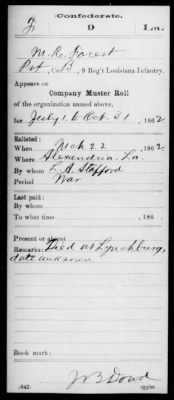 Confederate.
F 9 La.
M. R. Forest
Pvt, Co. B, 9 Reg't Louisiana Infantry.
Appears on
Company Muster Roll
of the organization named above,
for July 1 to Oct. 31, 1862
Enlisted:
When Mch 22, 1862
Where Alexandria, La.
By whom L. A. Stafford
Period War
Last paid:
By whom
To what time , 186
Present or absent
Remarks: Died at Lynchburg,
date unknown
Book mark:
(642)
J B Dowd
Copyist.